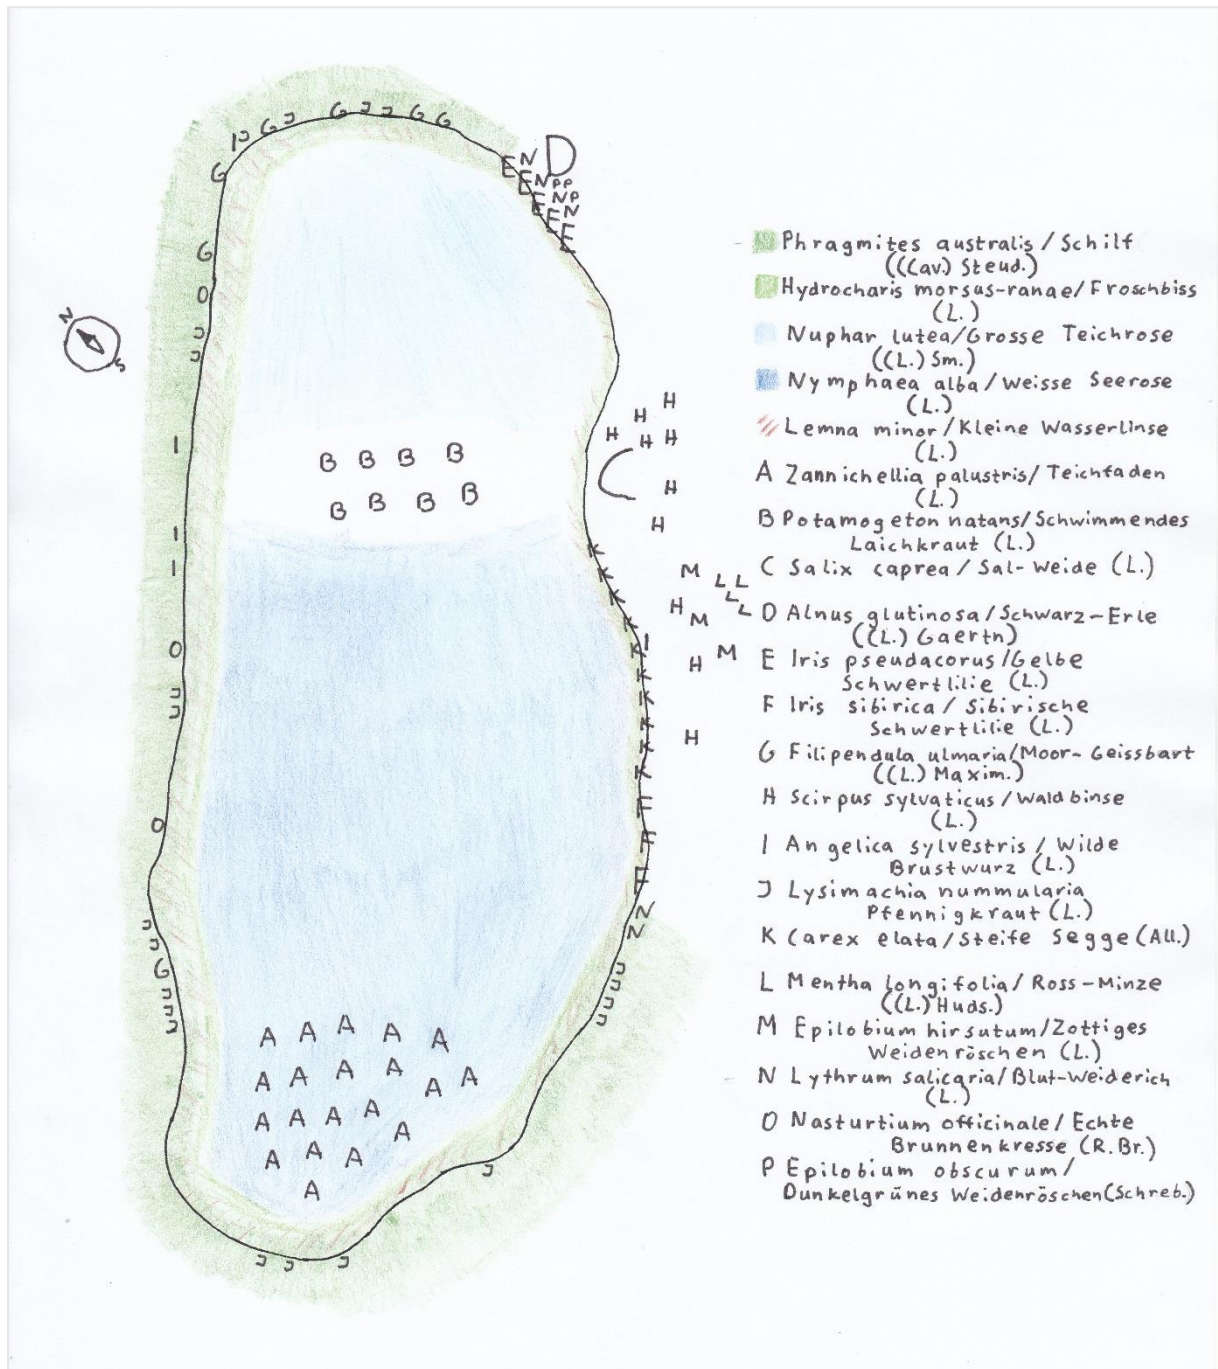 G J J G G
I J G J
G
E N D
E N P P
E N P
E N
E
G
O
J
J
N
S
I
B B B B
B B B B
I
I
O
J
J
O
J
J
G
J
J
J
H
H
H H H
C
H
H
M L L
L
H M L
M
H
H
K
K
K
K
K I
K
K
K
K
K
F
F
F
N
N
J
J
J
J
A A A A A
A A A A A A
A A A A A
A A A
A
J
J J J
Phragmites australis / Schilf
((Cav.) Steud.)
Hydrocharis morsus-ranae / Froschbiss
(L.)
Nuphar lutea / Grosse Teichrose
((L.) Sm.)
Nymphaea alba / Weisse Seerose
(L.)
Lemna minor / Kleine Wasserlinse
(L.)
A Zannichellia palustris / Teichfaden
(L.)
B Potamogeton natans / Schwimmendes
Laichkraut (L.)
C Salix caprea / Sal-Weide (L.)
D Alnus glutinosa / Schwarz-Erle
((L.) Gaertn)
E Iris pseudacorus / Gelbe
Schwertlilie (L.)
F Iris sibirica / Sibirische
Schwertlilie (L.)
G Filipendula ulmaria / Moor-Geissbart
((L.) Maxim.)
H Scirpus sylvaticus / Waldbinse
(L.)
I Angelica sylvestris / Wilde
Brustwurz (L.)
J Lysimachia nummularia
Pfennigkraut (L.)
K Carex elata / Steife Segge (All.)
L Mentha longifolia / Ross-Minze
((L.) Huds.)
M Epilobium hirsutum / Zottiges
Weidenröschen (L.)
N Lythrum salicaria / Blut-Weiderich
(L.)
O Nasturtium officinale / Echte
Brunnenkresse (R. Br.)
P Epilobium obscurum /
Dunkelgrünes Weidenröschen (Schreb.)